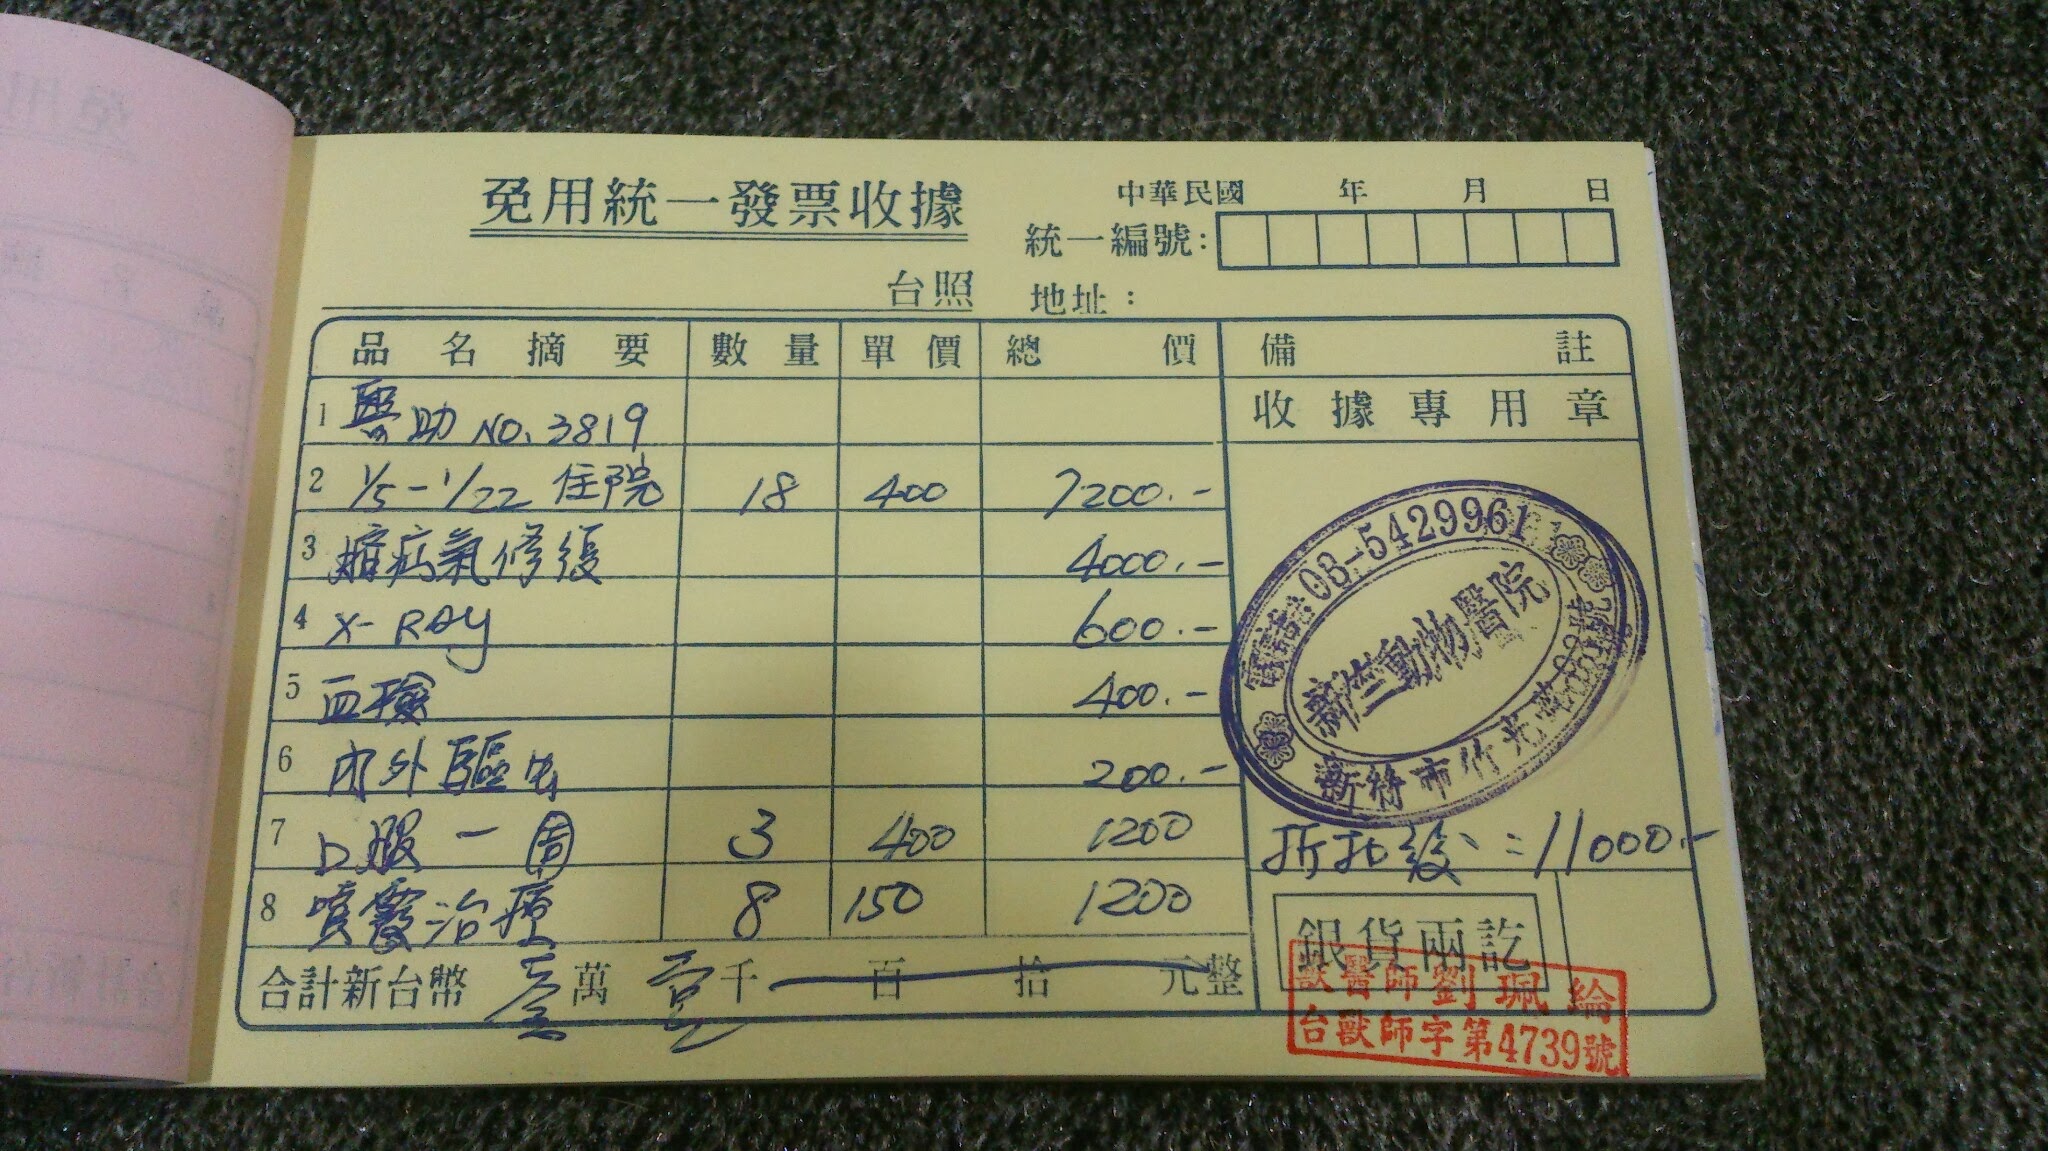 免用統一發票收據
中華民國 年 月 日
統一編號:
台照 地址:
品名摘要 數量 單價 總價 備註
1 醫助 NO. 3819 收據專用章
2 1/5-1/22 住院 18 400 7200.-
3 氣修復 4000.-
4 X-RAY 600.-
5 血檢 400.-
6 內外驅虫 200.-
7 口服一周 3 400 1200
8 噴霧治療 8 150 1200
合計新台幣 壹萬壹千百拾元整
電話:03-5429961
新竺動物醫院
新竹市竹光路
折扣後:11000.-
銀貨兩訖
獸醫師劉珮綸
台獸師字第4739號